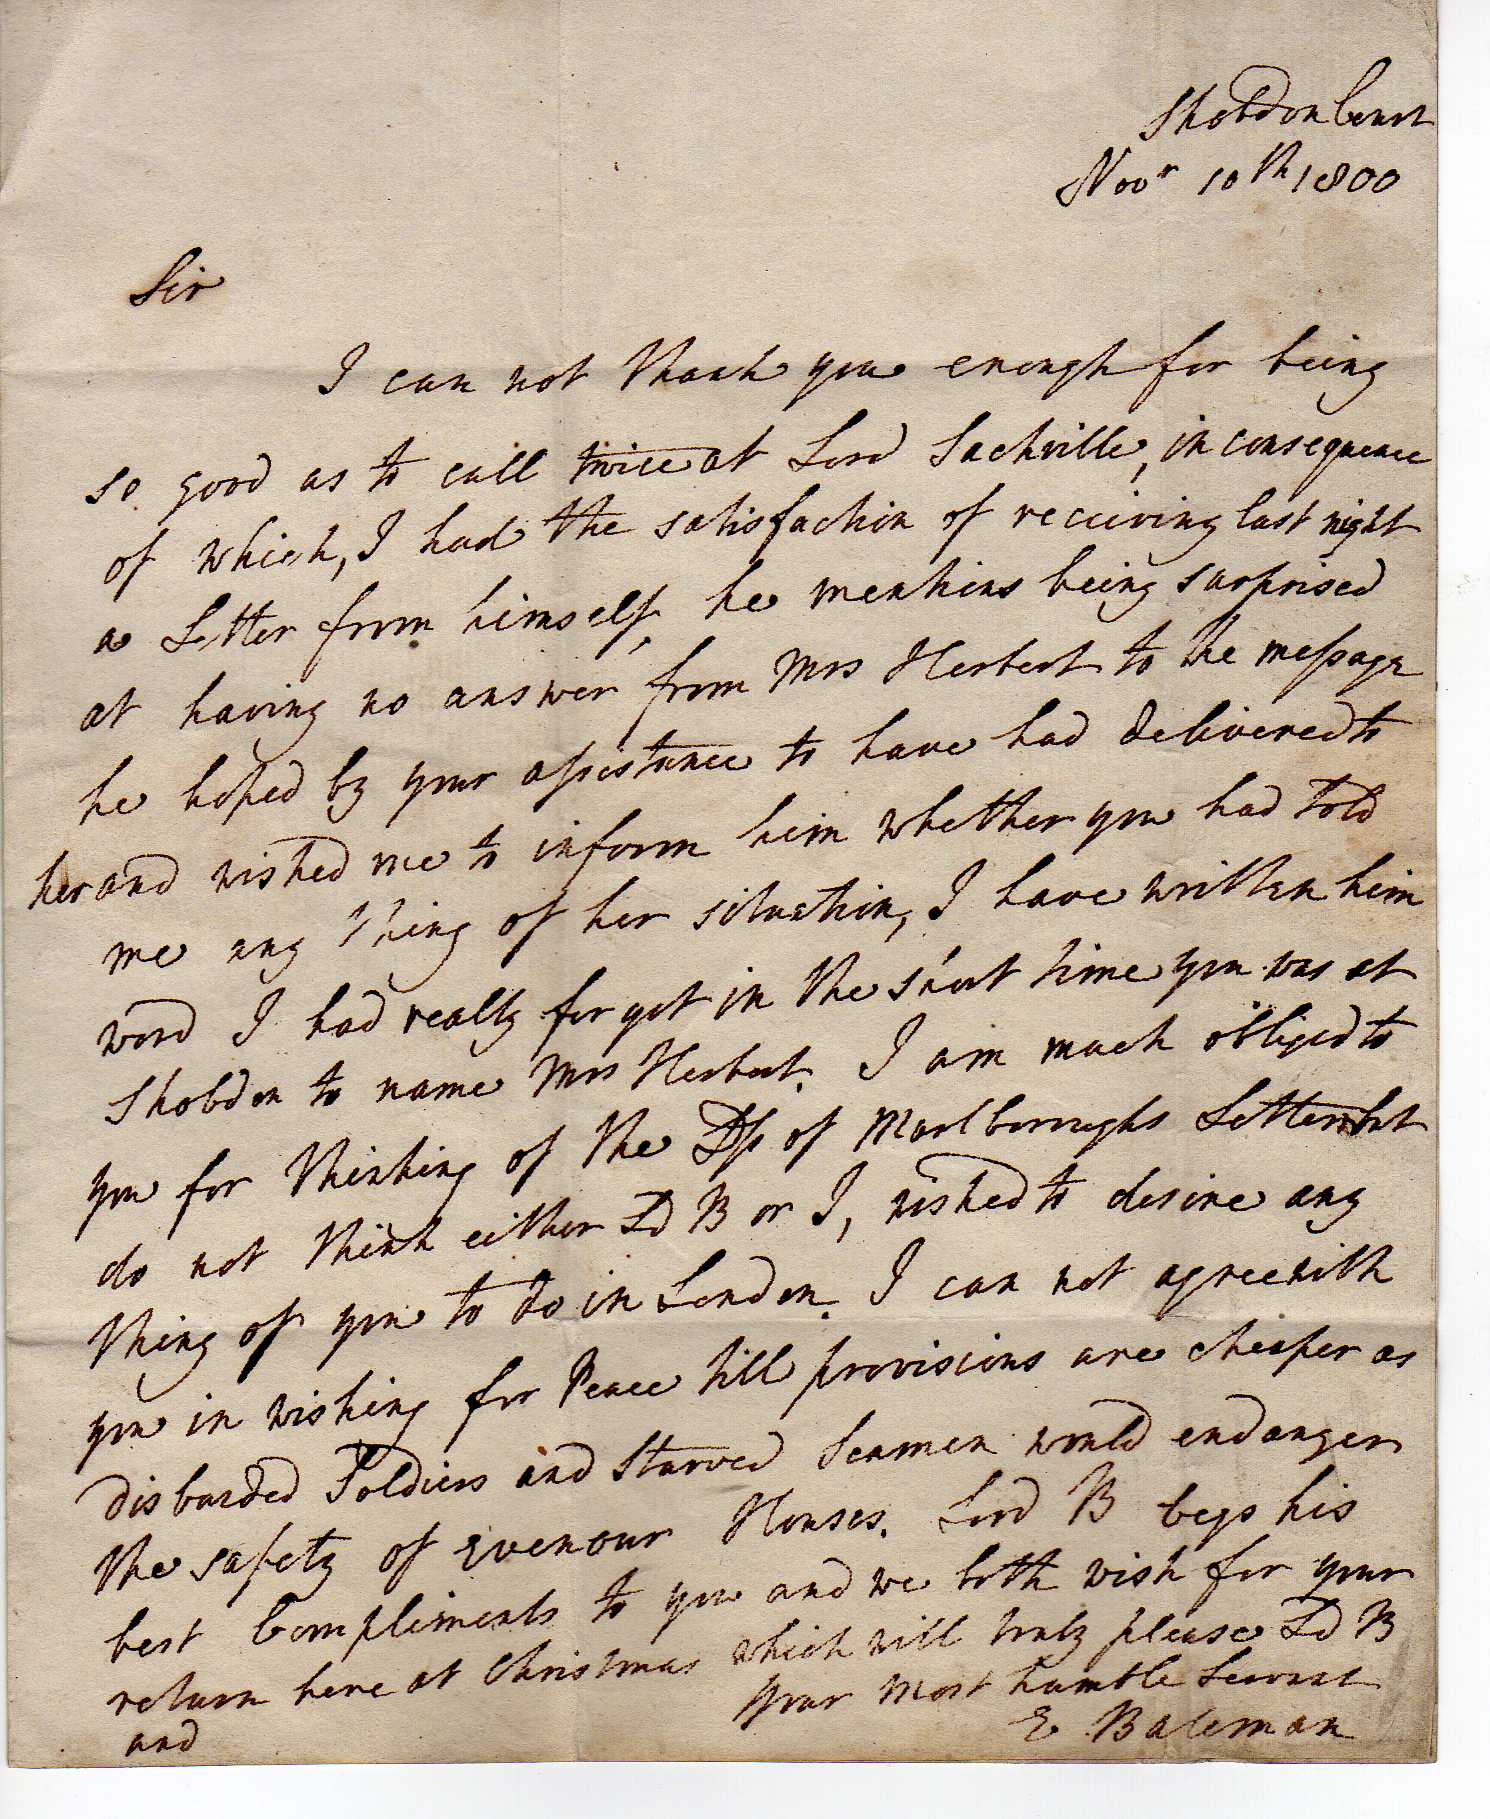 Shobdon Court
Novr 10th 1800
Sir
I can not thank you enough for being
so good as to call twice at Lord Sackville, in consequence
of which, I had the satisfaction of receiving last night
a Letter from himself, he mentions being surprised
at having no answer from Mrs Herbert to the message
he hoped by your assistance to have had delivered to
her and wished me to inform him whether you had told
me any thing of her situation, I have written him
word I had really forgot in the short time you was at
Shobdon to name Mrs Herbert. I am much obliged to
you for thinking of the Dss of Marlboroughs Letter but
do not think either Ld B or I, wished to desire any
thing of you to do in London. I can not agree with
you in wishing for Peace till provisions are cheaper as
disbanded Soldiers and Starved Seamen would endanger
the safety of even our Houses. Lord B begs his
best Compliments to you and we both wish for your
return here at Christmas which will truly please Ld B
and your most humble Servant
E Bateman